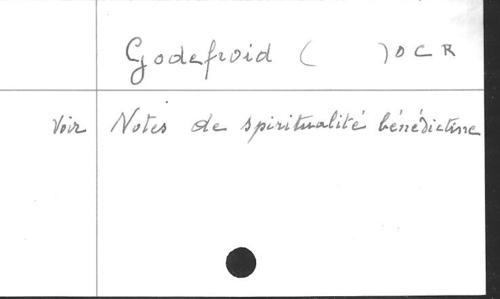 Godefroid (      ) O C R
Voir Notes de spiritualité bénédictine